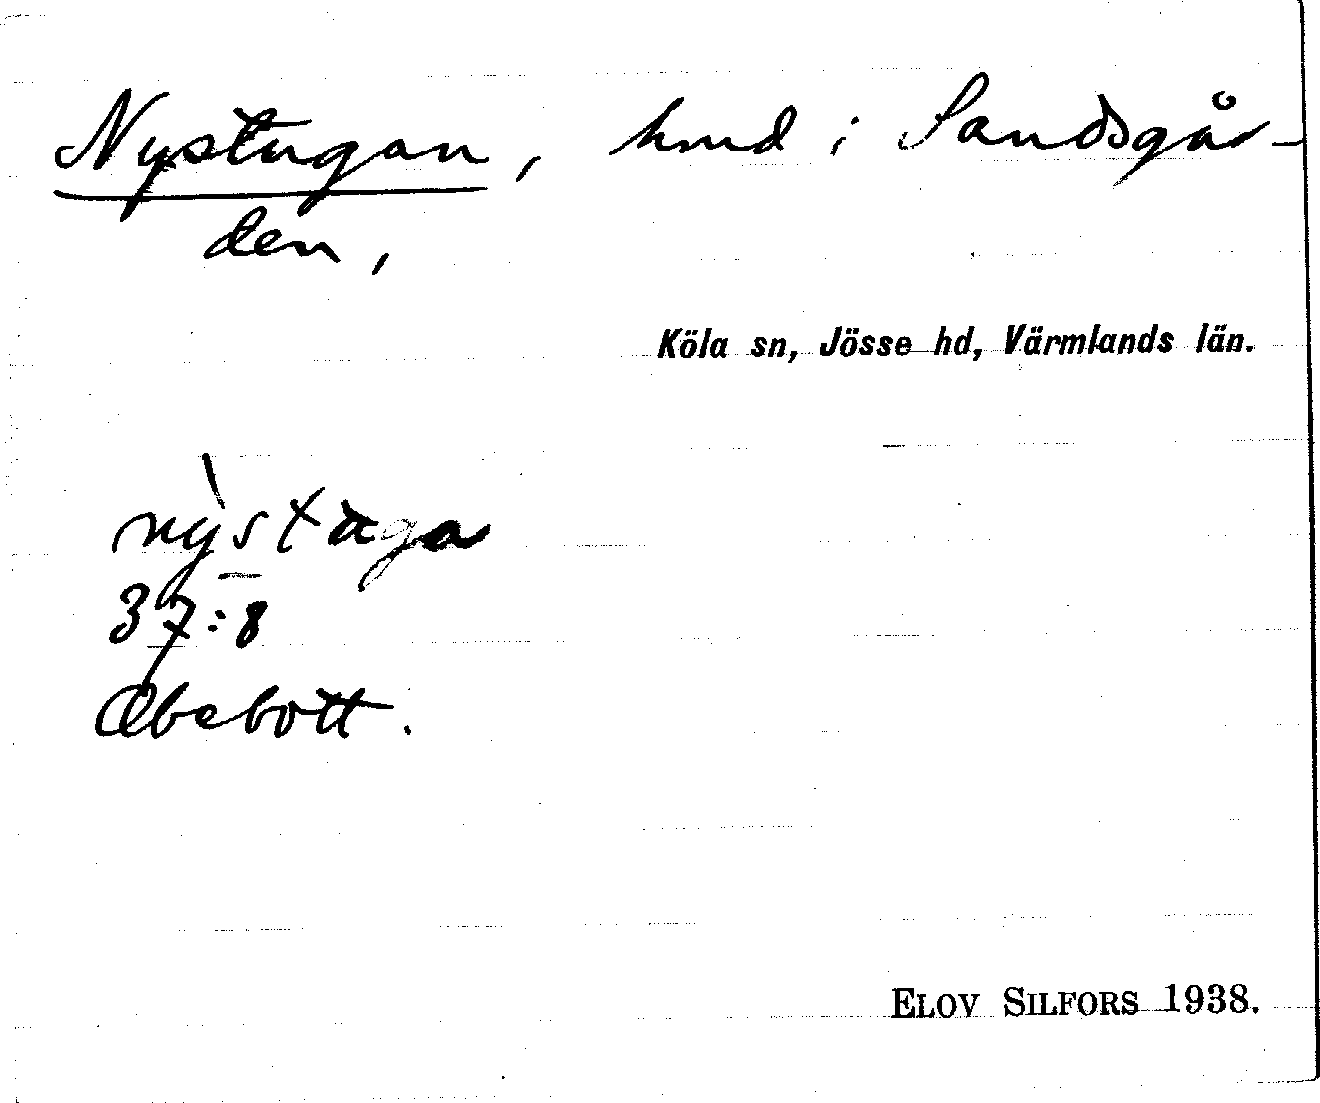 Nystugan, hmd i Sandsgår-
den,
Köla sn, Jösse hd, Värmlands län.
nỳstuga
37:8
Obebott.
ELOV SILFORS 1938.